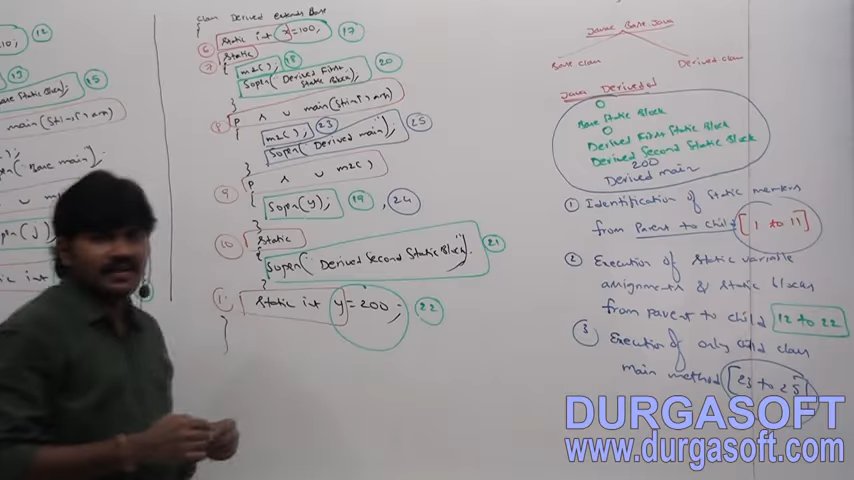 10;
12
13
Base Static Block);
15
main(String[] args)
);
Sopln("Base main");
Sopln(j)
static int
class Derived extends Base
{
6 static int x=100; 17
7 static
{ m2(); 18
Sopln("Derived First Static Block"); 20
}
8 P s v main(String[] args)
{ m2(); 23
Sopln("Derived main"); 25
}
9 P s v m2()
{
Sopln(y); 19, 24
}
10 static
{
Sopln("Derived Second Static Block"); 21
}
static int y=200; 22
}
Javac Base.java
Base.class Derived.class
Java Derived↵
0
Base Static Block
0
Derived First Static Block
Derived Second Static Block
200
Derived main
① Identification of static members
from Parent to child [1 to 11]
② Execution of static variable
assignments & static blocks
from parent to child 12 to 22
③ Execution of only child class
main method [23 to 25]
DURGASOFT
www.durgasoft.com